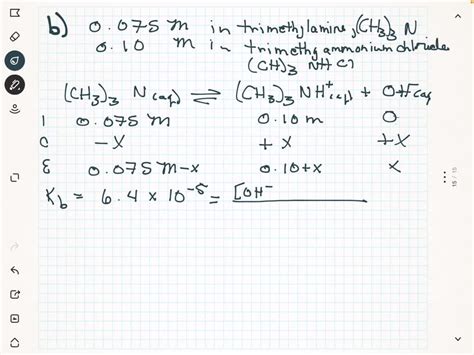 b) 0.075 m in trimethylamine, (CH3)3 N
0.10 m in trimethyammonium chloride
(CH)3 NH Cl
(CH3)3 N(aq) ⇌ (CH3)3 NH+(aq) + OH-(aq)
I 0.075 m 0.10 m 0
C -x +x +x
E 0.075 m-x 0.10+x x
Kb = 6.4 x 10-5 = [OH-
15 / 15